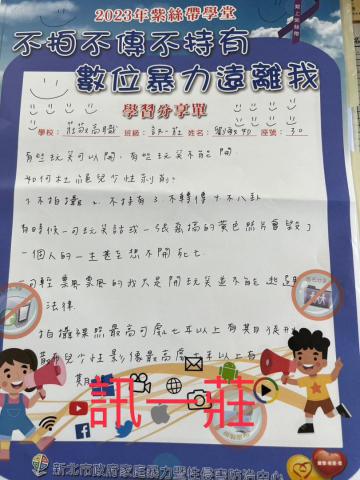 2023年紫絲帶學堂
戴上紫絲帶
不拍不傳不持有
數位暴力遠離我
學習分享單
學校：莊敬高職 班級：訊一莊 姓名： 座號：30
有些玩笑可以開，有些玩笑不能開
如何杜絕兒少性剝削？
1.不拍攝 2.不持有 3.不轉傳 4.不八卦
有時候一句玩笑話或一張亂搞的黃色照片會毀了
一個人的一生甚至想不開死亡
一句輕飄飄的我只是開玩笑並不能
法律.
拍攝裸照最高可處七年以上有期徒刑
兒少性影像最高處 年以上有
期
訊一莊
新北市政府家庭暴力暨性侵害防治中心